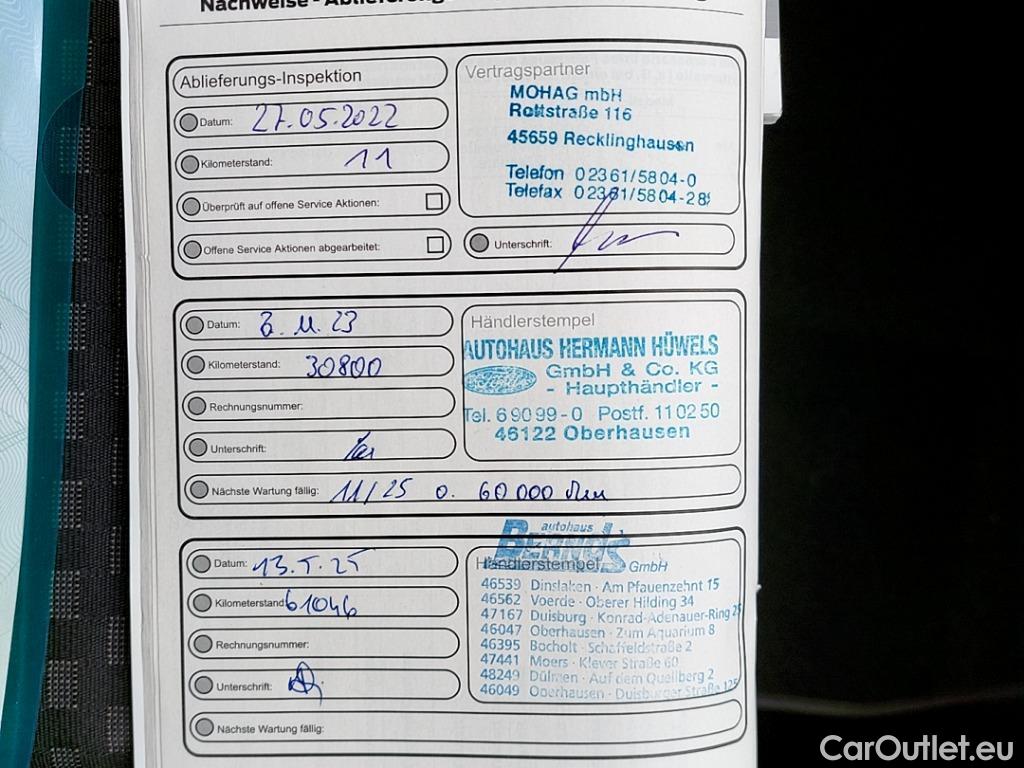 Nachweise - Ablieferung
Ablieferungs-Inspektion
Datum: 27.05.2022
Kilometerstand: 11
Überprüft auf offene Service Aktionen:
Offene Service Aktionen abgearbeitet:
Vertragspartner
MOHAG mbH
Rottstraße 116
45659 Recklinghausen
Telefon 02361/5804-0
Telefax 02361/5804-28
Unterschrift:
Datum: 11.23
Kilometerstand: 30800
Rechnungsnummer:
Unterschrift:
Nächste Wartung fällig: 11/25 o. 60 000
Händlerstempel
AUTOHAUS HERMANN HÜWELS
Ford
GmbH & Co. KG
- Haupthändler -
Tel. 69099-0 Postf. 110250
46122 Oberhausen
Datum: 13.5.25
Kilometerstand 61046
Rechnungsnummer:
Unterschrift:
Nächste Wartung fällig:
autohaus
Händlerstempel GmbH
46539 Dinslaken · Am Pfauenzehnt 15
46562 Voerde · Oberer Hilding 34
47167 Duisburg · Konrad-Adenauer-Ring
46047 Oberhausen · Zum Aquarium 8
46395 Bocholt · Schaffeldstraße 2
47441 Moers · Klever Straße 60
48249 Dülmen · Auf dem Quellberg 2
46049 Oberhausen · Duisburger Straße 125
CarOutlet.eu